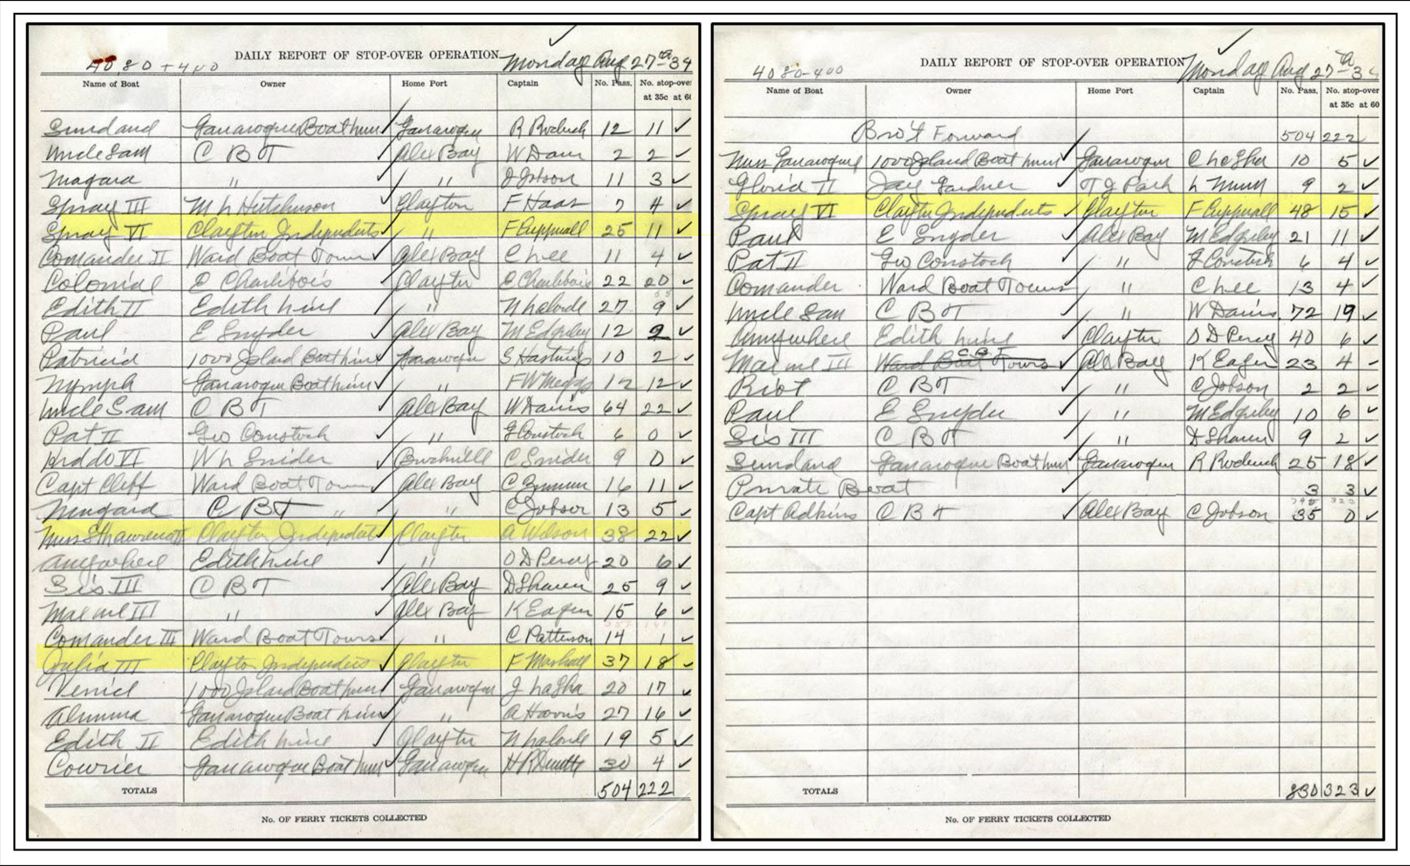 DAILY REPORT OF STOP-OVER OPERATION Monday Aug 27th-34
4080+400
Name of Boat Owner Home Port Captain No. Pass. No. stop-over
at 35c at 60
Sundand Gananoque Boat Line Gananoque R Roderick 12 11 ✓
Uncle Sam C B T Alex Bay W Davis 2 2 ✓
Magard " " J Jobson 11 3 ✓
Spray III M L Hutchinson Clayton F Haas 7 4 ✓
Spray VI Clayton Independents " F Cuppnall 25 11 ✓
Comander II Ward Boat Tours Alex Bay C Lee 11 4 ✓
Colonial E Charlebois Clayton E Charlebois 22 20 ✓
Edith II Edith Line " N Lalonde 27 9 ✓
Paul E Snyder Alex Bay M Edgeley 12 2 ✓
Patricia 1000 Island Boat Line Gananoque S Hastings 10 2 ✓
Nymph Gananoque Boat Line " F W Meggs 12 12 ✓
Uncle Sam C B T Alex Bay W Davis 64 22 ✓
Pat II Geo Comstock " G Comstock 6 0 ✓
Kiddo VI W L Snider C Snider 9 0 ✓
Capt Cliff Ward Boat Tours Alex Bay 16 11 ✓
Magard C B T " C Jobson 13 5 ✓
Miss St Lawrence II Clayton Independents Clayton A Wilson 38 22 ✓
Anywhere Edith Line " O D Percy 20 6 ✓
Sis III C B T Alex Bay D Shauer 25 9 ✓
Maxine III " Alex Bay K Eagen 15 6 ✓
Comander III Ward Boat Tours " C Patterson 14 1 ✓
Julia III Clayton Independents Clayton F Marshall 37 18 ✓
Venice 1000 Island Boat Line Gananoque J LaSha 20 17 ✓
Alumma Gananoque Boat Line " A Harris 27 16 ✓
Edith II Edith Line Clayton N Lalonde 19 5 ✓
Courier Gananoque Boat Line Gananoque 30 4 ✓
TOTALS 504 222
No. OF FERRY TICKETS COLLECTED
DAILY REPORT OF STOP-OVER OPERATION Monday Aug 27th-34
4080-400
Name of Boat Owner Home Port Captain No. Pass. No. stop-over
at 35c at 60
Bro't Forward 504 222
Miss Gananoque 1000 Island Boat Line Gananoque C LaSha 10 5 ✓
Gloria II Jay Gardner T I Park L Munn 9 2 ✓
Spray VI Clayton Independents Clayton F Cuppnall 48 15 ✓
Paul E Snyder Alex Bay M Edgeley 21 11 ✓
Pat II Geo Comstock " G Comstock 6 4 ✓
Comander Ward Boat Tours " C Lee 13 4 ✓
Uncle Sam C B T " W Davis 72 19 ✓
Anywhere Edith Line Clayton O D Percy 40 6 ✓
Maxine III Ward Boat Tours C B Alex Bay K Eagen 23 4 -
Riot C B T " C Jobson 2 2 ✓
Paul E Snyder " M Edgeley 10 6 ✓
Sis III C B T " D Shauer 9 2 ✓
Sundand Gananoque Boat Line Gananoque R Roderick 25 18 ✓
Private Boat 3 3 ✓
Capt Adkins C B T Alex Bay C Jobson 35 0 ✓
TOTALS 830 323 ✓
No. OF FERRY TICKETS COLLECTED